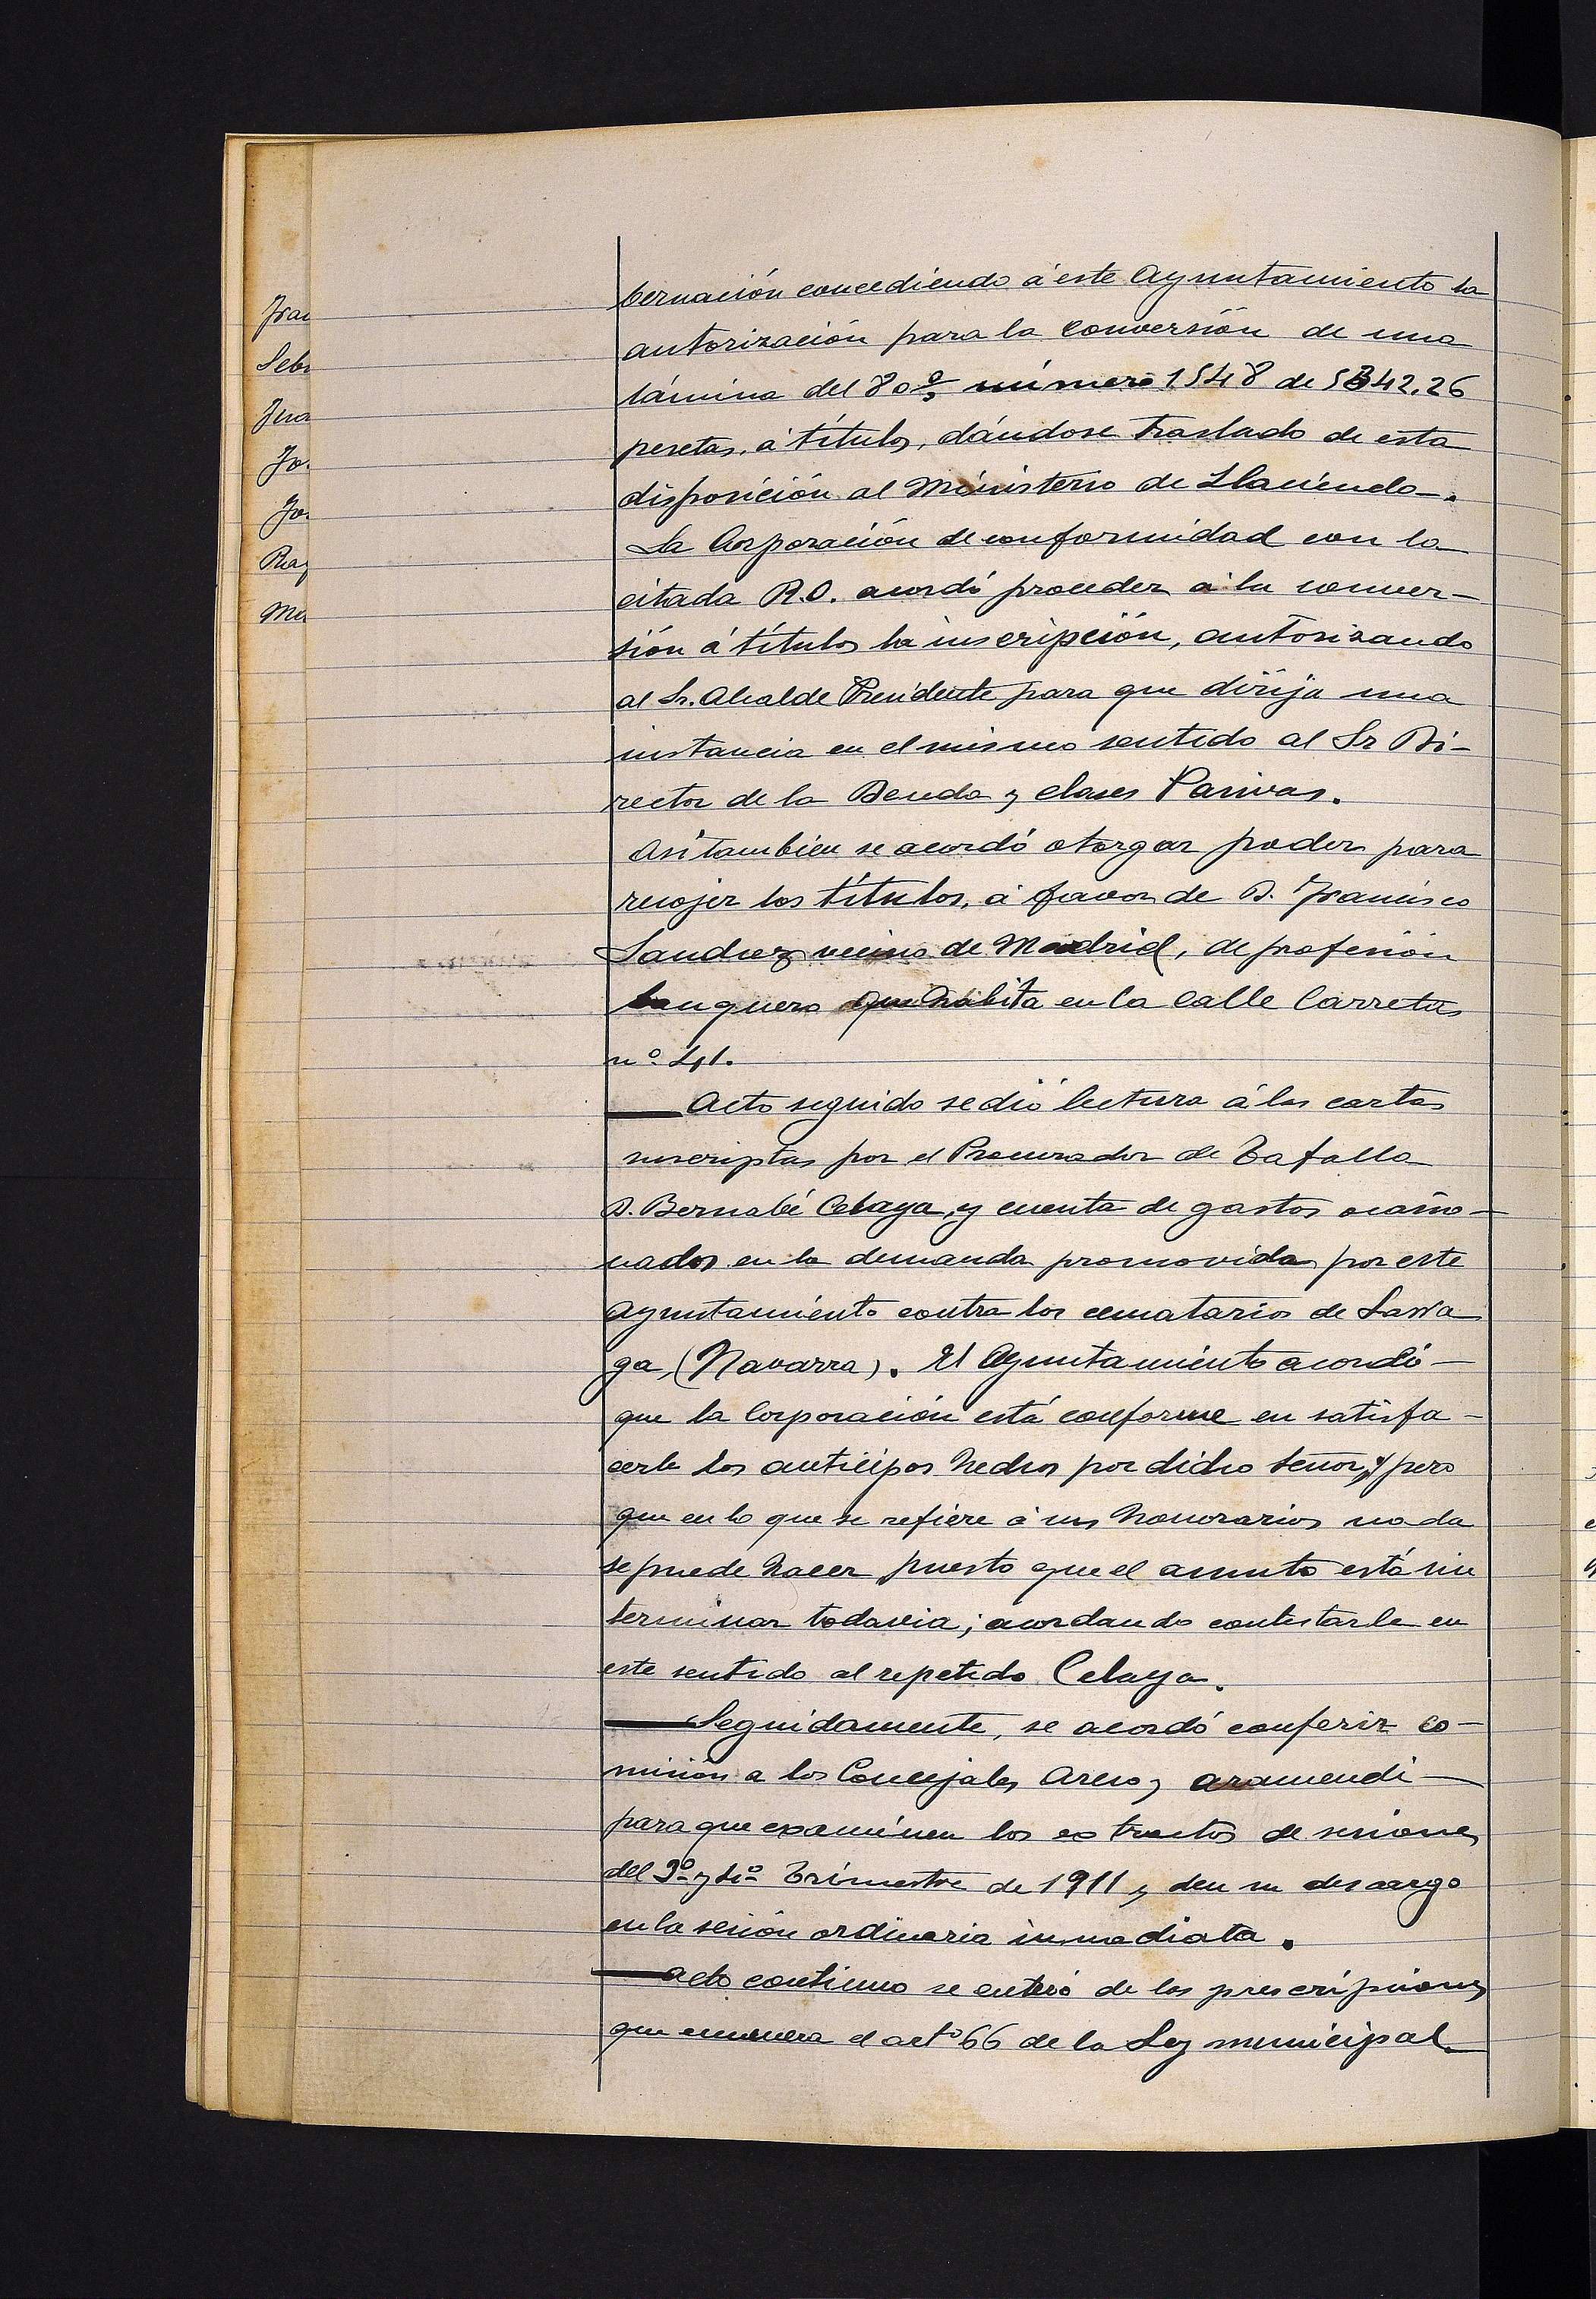 Fran
Seb
Juo
Jo
Jo
Ray
Ma
bernación concediendo á este Ayuntamiento la
autorización para la conversión de una
lámina del 80% número 1548 de 5342,26
pesetas, á títulos, dándose traslado de esta
disposición al Ministerio de Hacienda.
La Corporación de conformidad con la
citada R.O. acordó proceder á la conver-
sión á títulos la inscripción, autorizando
al Sr. Alcalde Presidente para que dirija una
instancia en el mismo sentido al Sr Di-
rector de la Deuda y clases Pasivas.
Asi tambien se acordó otorgar poder para
recojer los títulos, á favor de D. Francisco
Sanchez vecino de Madrid, de profesión
banquero que habita en la Calle Carretas
nº 41.
Acto seguido se dió lectura á las cartas
suscriptas por el Procurador de Tafalla
D. Bernabé Celaya, y cuenta de gastos ocasio-
nados en la demanda promovida por este
Ayuntamiento contra los cematarios de Larra
ga, (Navarra). El Ayuntamiento acordó
que la Corporación está conforme en satisfa-
cerle los anticipos hechos por dicho señor, y pero
que en lo que se refiere á sus honorarios nada
se puede hacer puesto que el asunto está sin
terminar todavia; acordando contestarle en
este sentido al repetido Celaya.
Seguidamente, se acordó conferir co-
misión a los Concejales Areso y Aramendi
para que examinen los extractos de sesiones
del 3º y 4º Trimestre de 1911 y den su descargo
en la sesión ordinaria inmediata.
Acto continuo se enteró de las prescripciones
que enumera el artº 66 de la Ley municipal